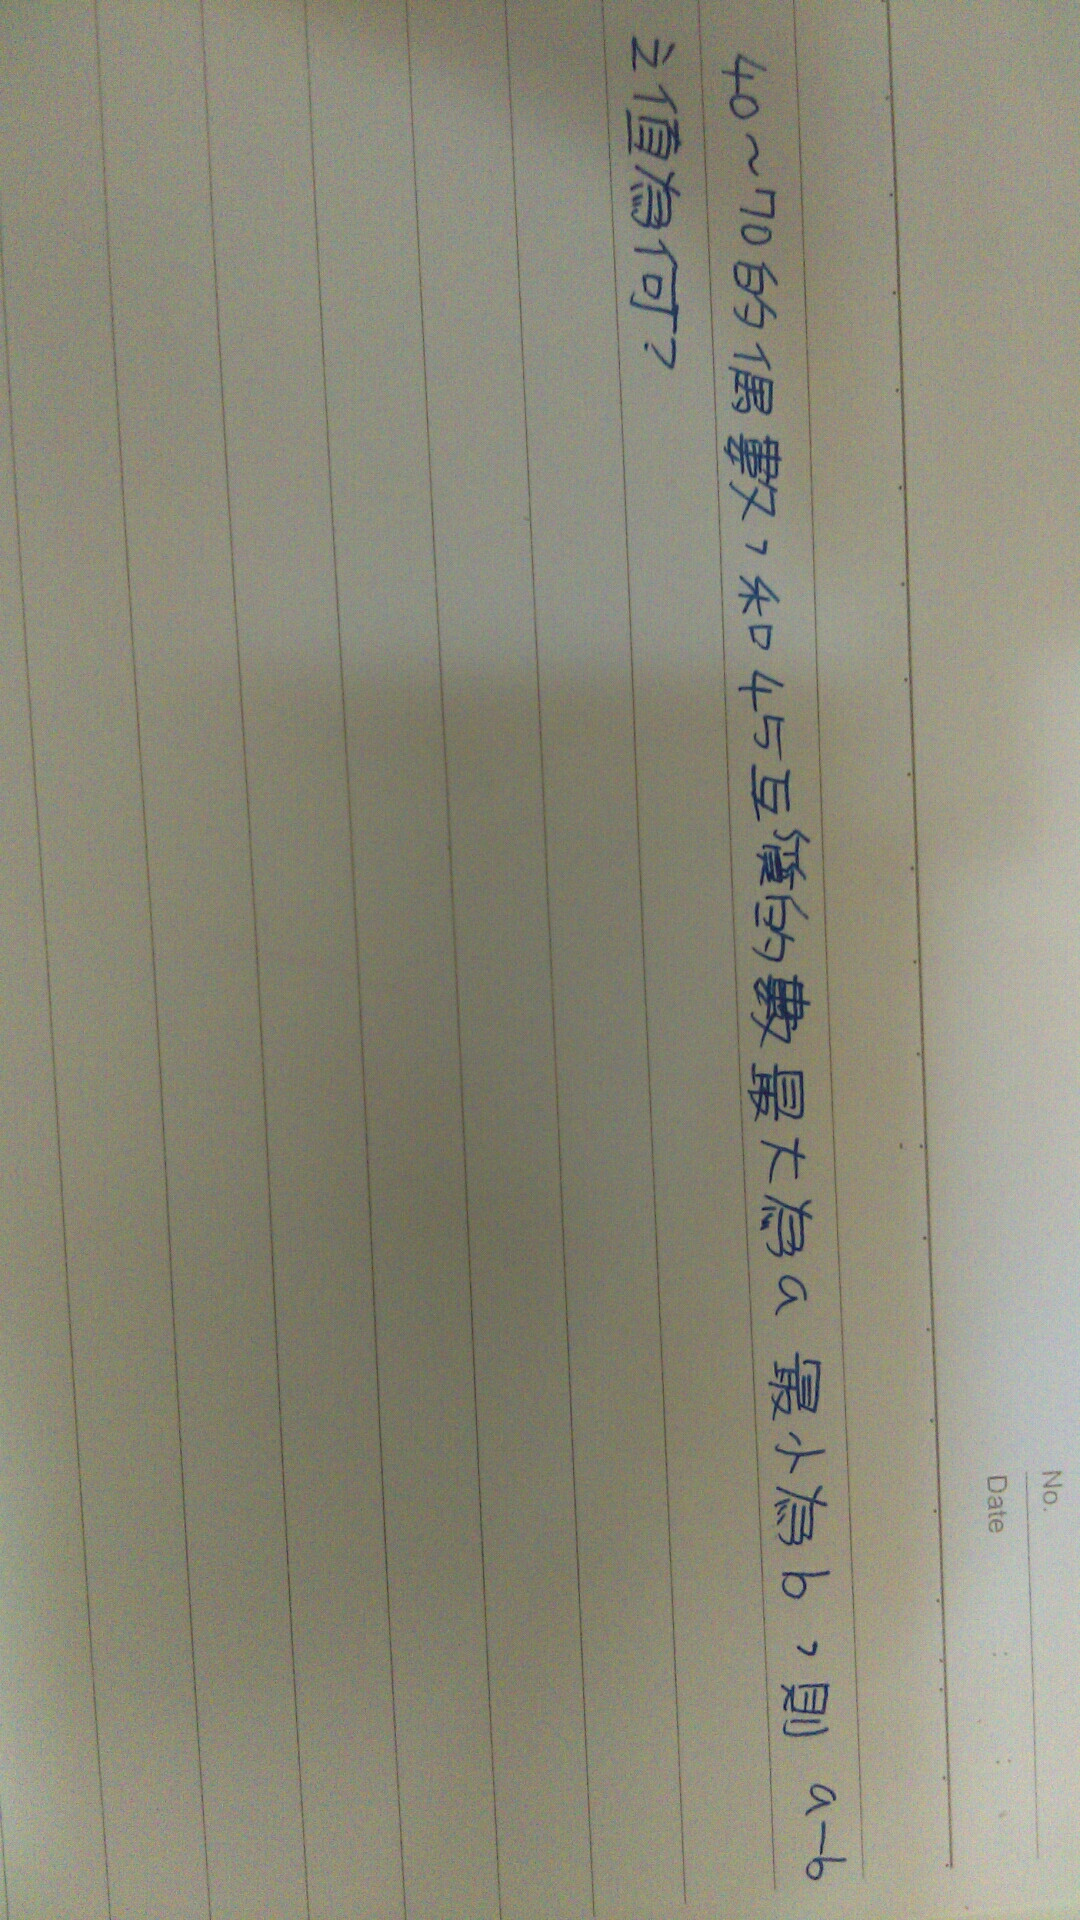 No.
Date
40~70的偶數，和45互質的數最大為a 最小為b，則 a-b
之值為何？